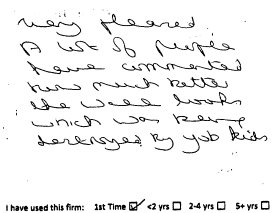 very pleased
A lot of people
have commented
how much better
the wall looks
which was being
destroyed By yob kids
I have used this firm: 1st Time ☑ <2 yrs ☐ 2-4 yrs ☐ 5+ yrs ☐